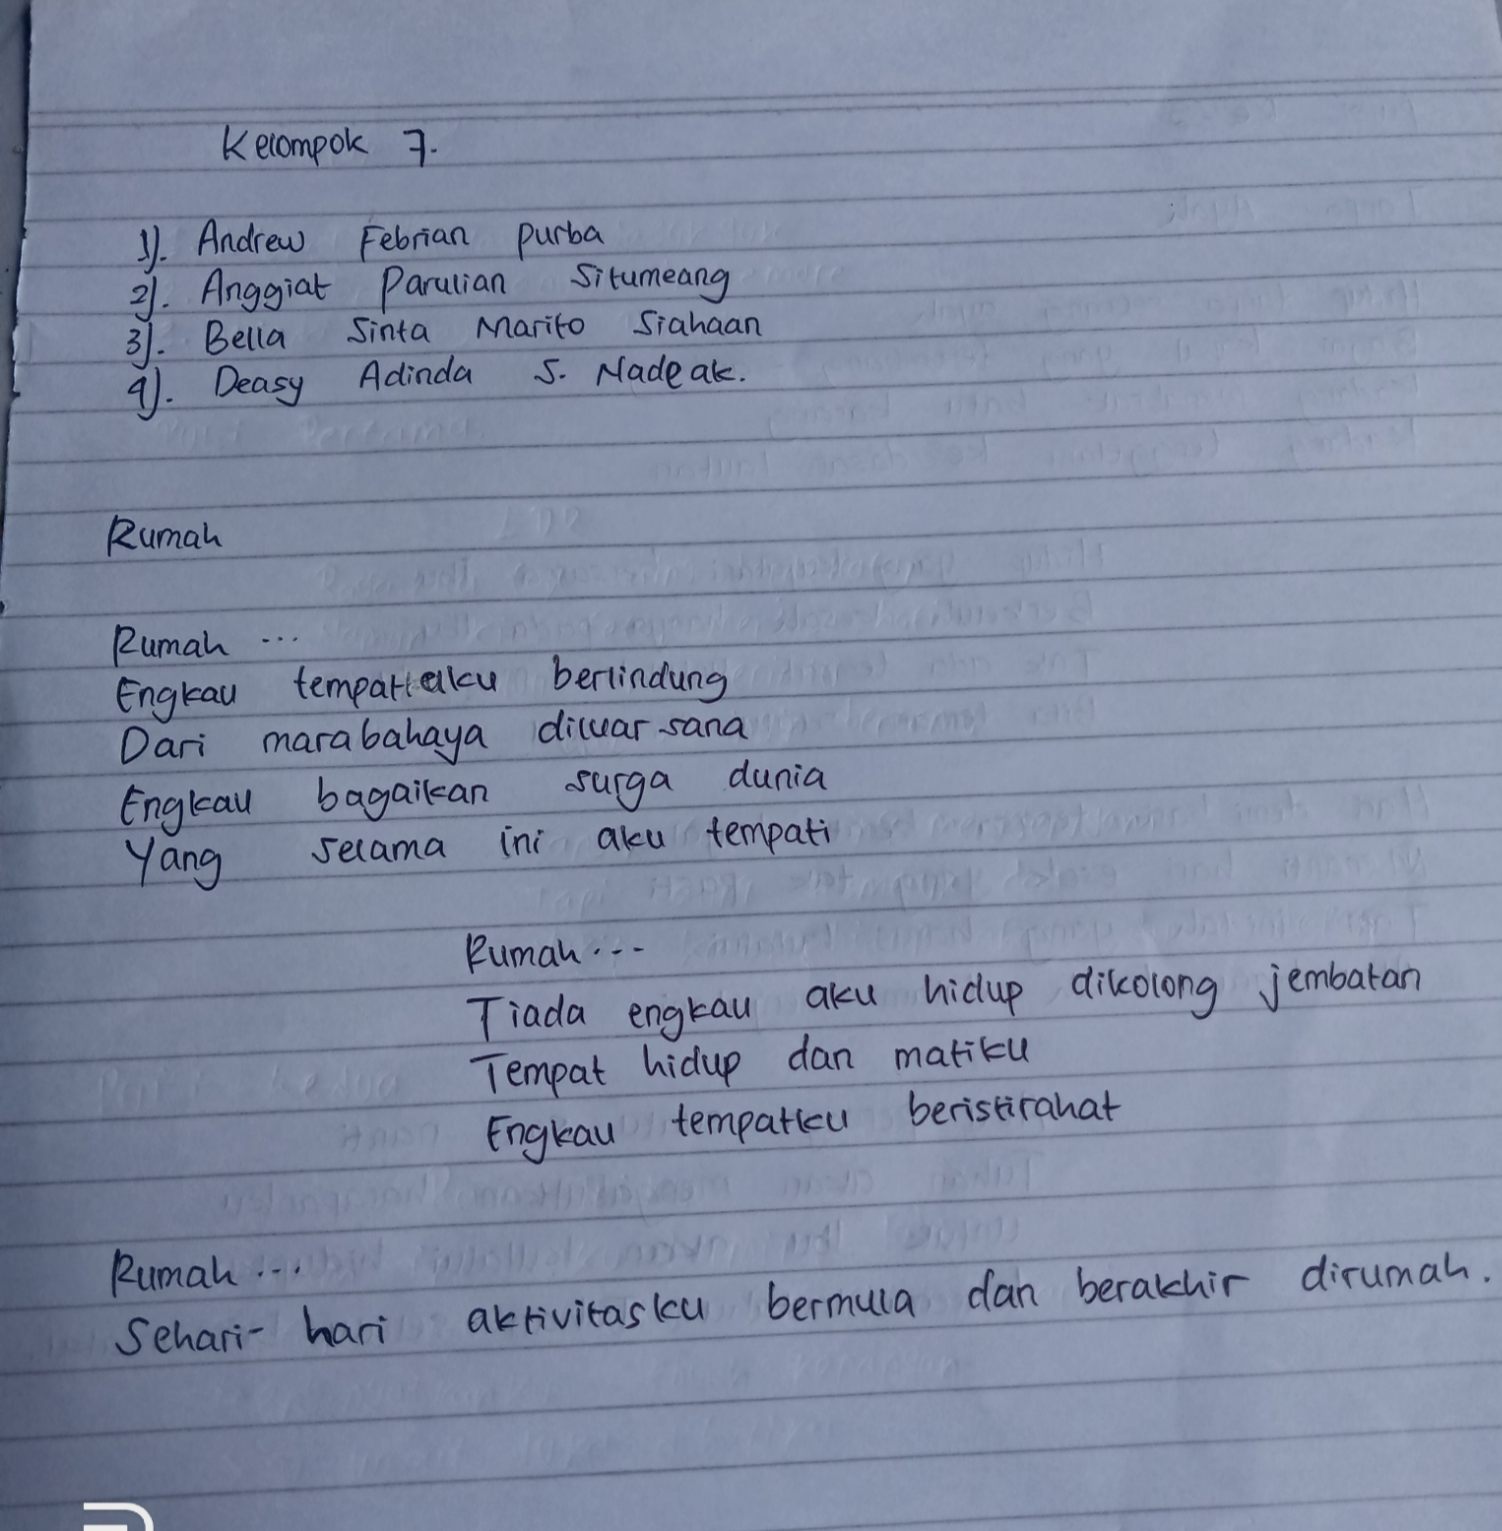 Kelompok 7.
1). Andrew Febrian purba
2). Anggiat Parulian Situmeang
3). Bella Sinta Marito Siahaan
4). Deasy Adinda S. Nadeak.
Rumah
Rumah ...
Engkau tempat aku berlindung
Dari marabahaya diluar sana
Engkau bagaikan surga dunia
Yang selama ini aku tempati
Rumah ...
Tiada engkau aku hidup dikolong jembatan
Tempat hidup dan matiku
Engkau tempatku beristirahat
Rumah ...
Sehari-hari aktivitasku bermula dan berakhir dirumah.